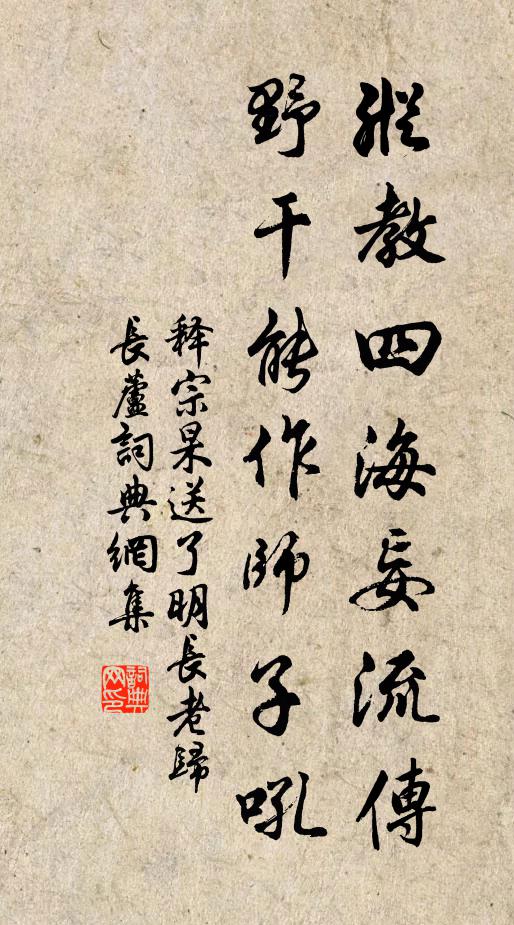 縱教四海妄流傳
野干能作師子吼
释宗杲送了明長老歸
長蘆詞典網集
詞典
网印